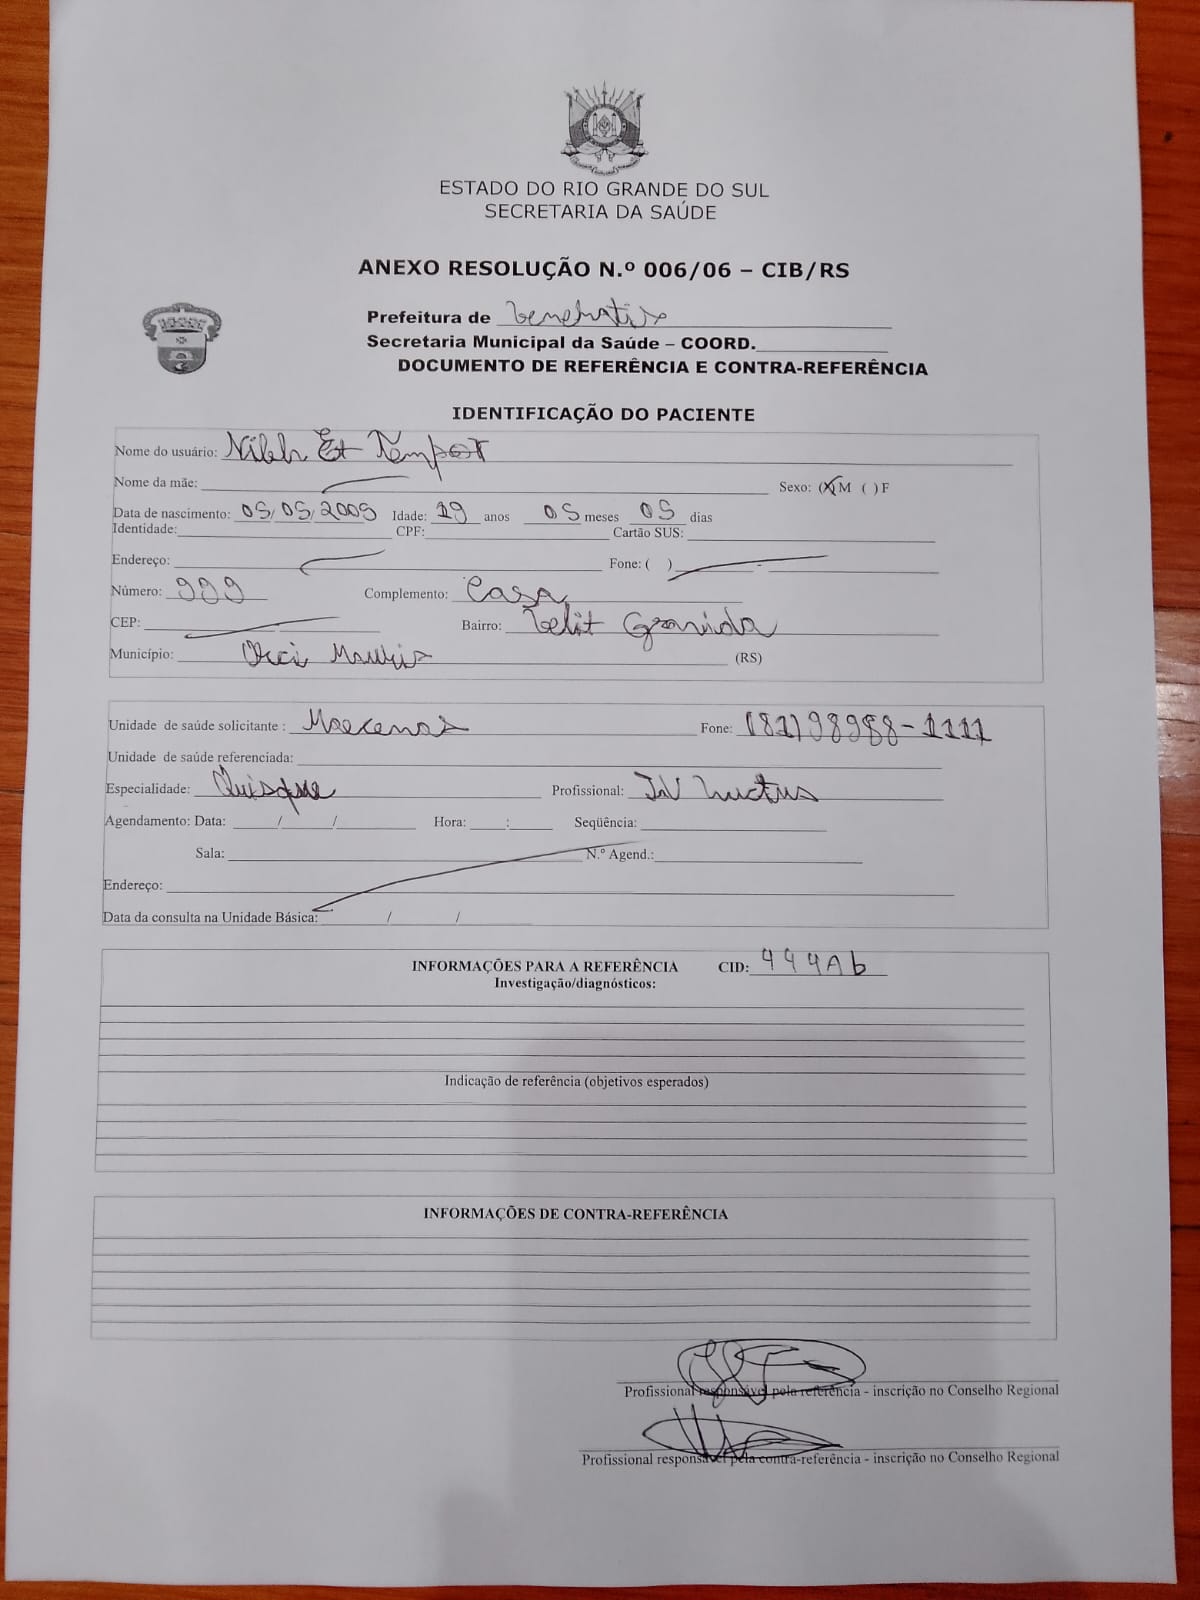 ESTADO DO RIO GRANDE DO SUL
SECRETARIA DA SAÚDE
ANEXO RESOLUÇÃO N.º 006/06 – CIB/RS
Prefeitura de
Secretaria Municipal da Saúde – COORD.
DOCUMENTO DE REFERÊNCIA E CONTRA-REFERÊNCIA
IDENTIFICAÇÃO DO PACIENTE
Nome do usuário: Nibh Et Tempor
Nome da mãe: Sexo: (X) M ( ) F
Data de nascimento: 05/05/2005 Idade: 19 anos 05 meses 05 dias
Identidade: CPF: Cartão SUS:
Endereço: Fone: ( ) -
Número: 999 Complemento: Casa
CEP: - Bairro: Velit Gravida
Município: Orci Mauris (RS)
Unidade de saúde solicitante : Maecenas Fone: (81)98988-1111
Unidade de saúde referenciada:
Especialidade: Quisque Profissional: In luctus
Agendamento: Data: / / Hora: : Seqüência:
Sala: N.º Agend.:
Endereço:
Data da consulta na Unidade Básica: / /
INFORMAÇÕES PARA A REFERÊNCIA CID: 444Ab
Investigação/diagnósticos:
Indicação de referência (objetivos esperados)
INFORMAÇÕES DE CONTRA-REFERÊNCIA
Profissional responsável pela referência - inscrição no Conselho Regional
Profissional responsável pela contra-referência - inscrição no Conselho Regional